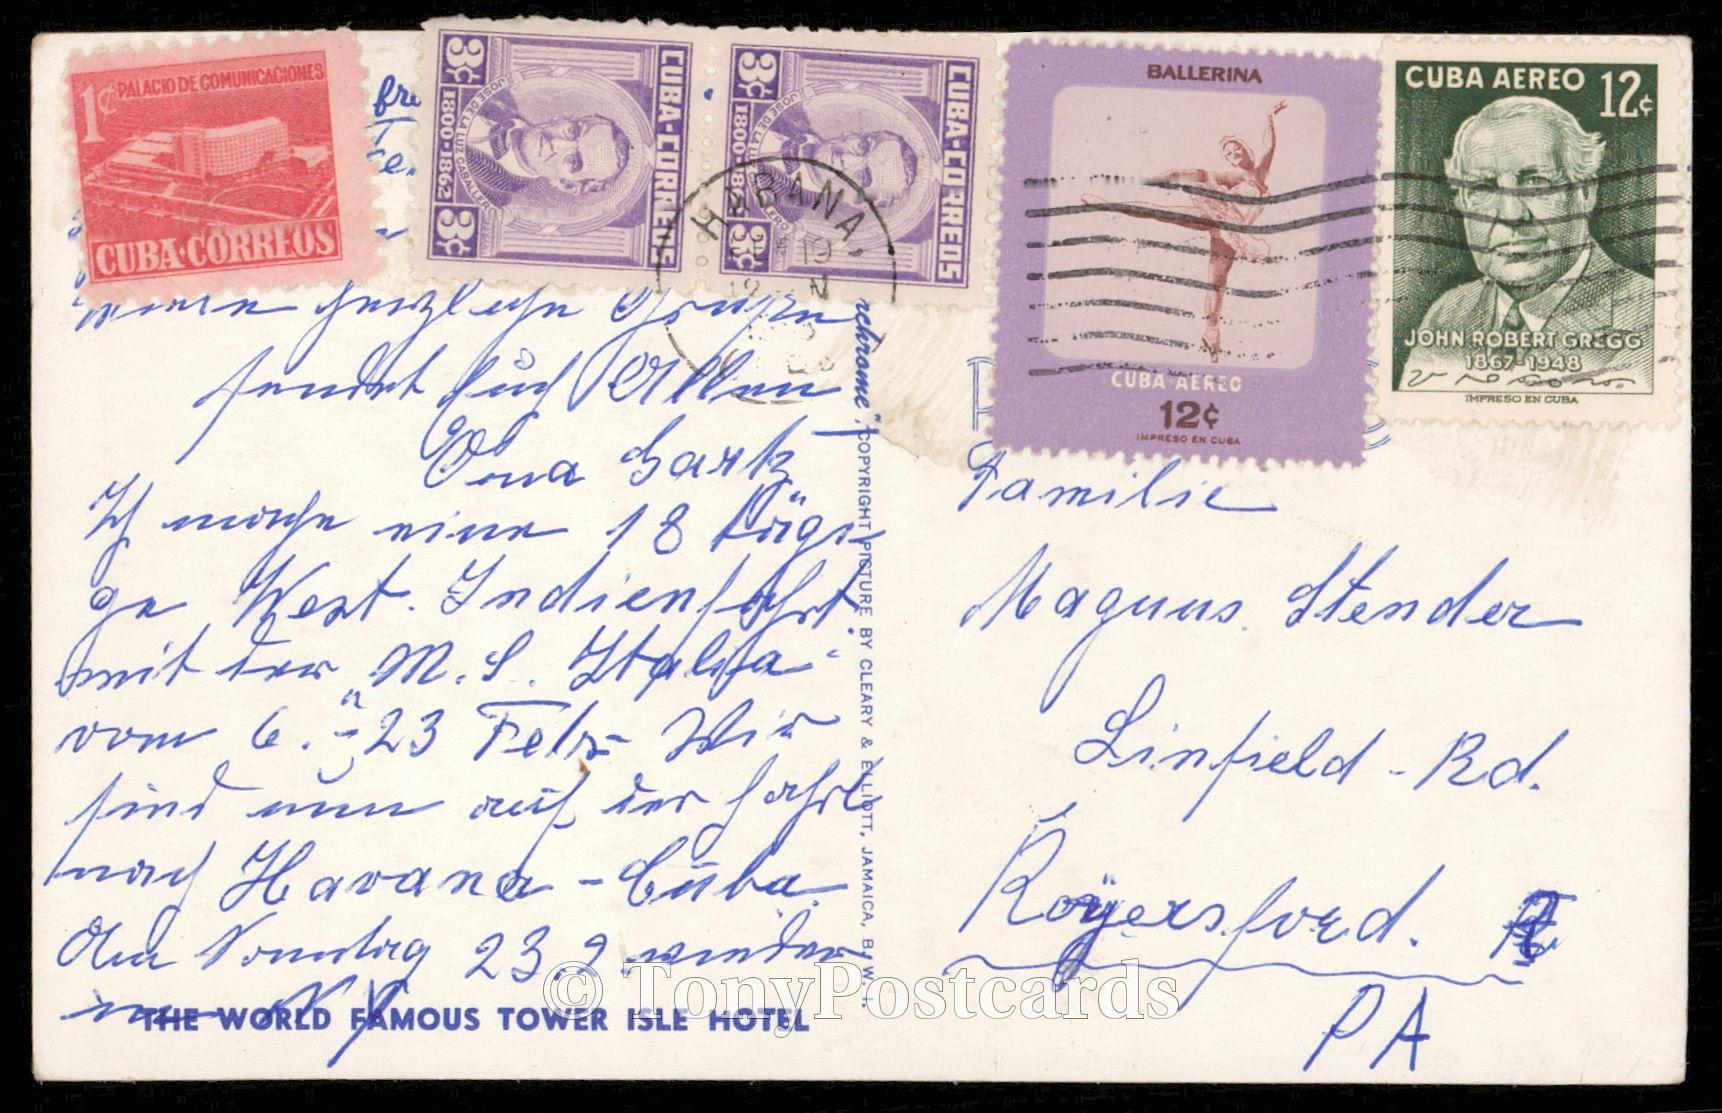 1¢ PALACIO DE COMUNICACIONES
CUBA·CORREOS
3¢ 1800-1862 3¢
JOSÉ DE LA LUZ CABALLERO
CUBA·CORREOS
3¢ 1800-1862 3¢
JOSÉ DE LA LUZ CABALLERO
CUBA·CORREOS
HABANA,
BALLERINA
CUBA AEREO
12¢
IMPRESO EN CUBA
CUBA AEREO 12¢
JOHN ROBERT GREGG
1867-1948
IMPRESO EN CUBA
herzliche Grüße
sendet Euch Allen
Oma
Ich mache eine 18 tägi-
ge West. Indienfahrt
mit der "M. S. Italia"
vom 6. - 23 Febr. Wir
sind nun auf der Fahrt
nach Havana - Cuba.
Am Sonntag 23.2. wieder
in N Y
THE WORLD FAMOUS TOWER ISLE HOTEL
chrome", COPYRIGHT PICTURE BY CLEARY & ELLIOTT, JAMAICA, B. W. I.
Familie
Magnus. Stender
Linfield - Rd.
Royersford.
PA
© TonyPostcards